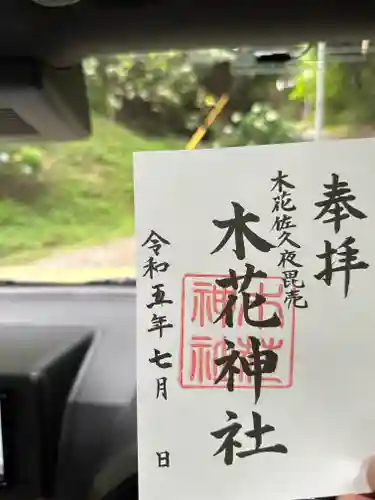 奉拝
木花佐久夜毘売
木花神社
令和五年七月 日